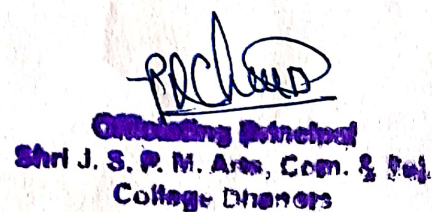 Officiating Principal
Shri J. S. P. M. Arts, Com. & Sci.
College Dhanora